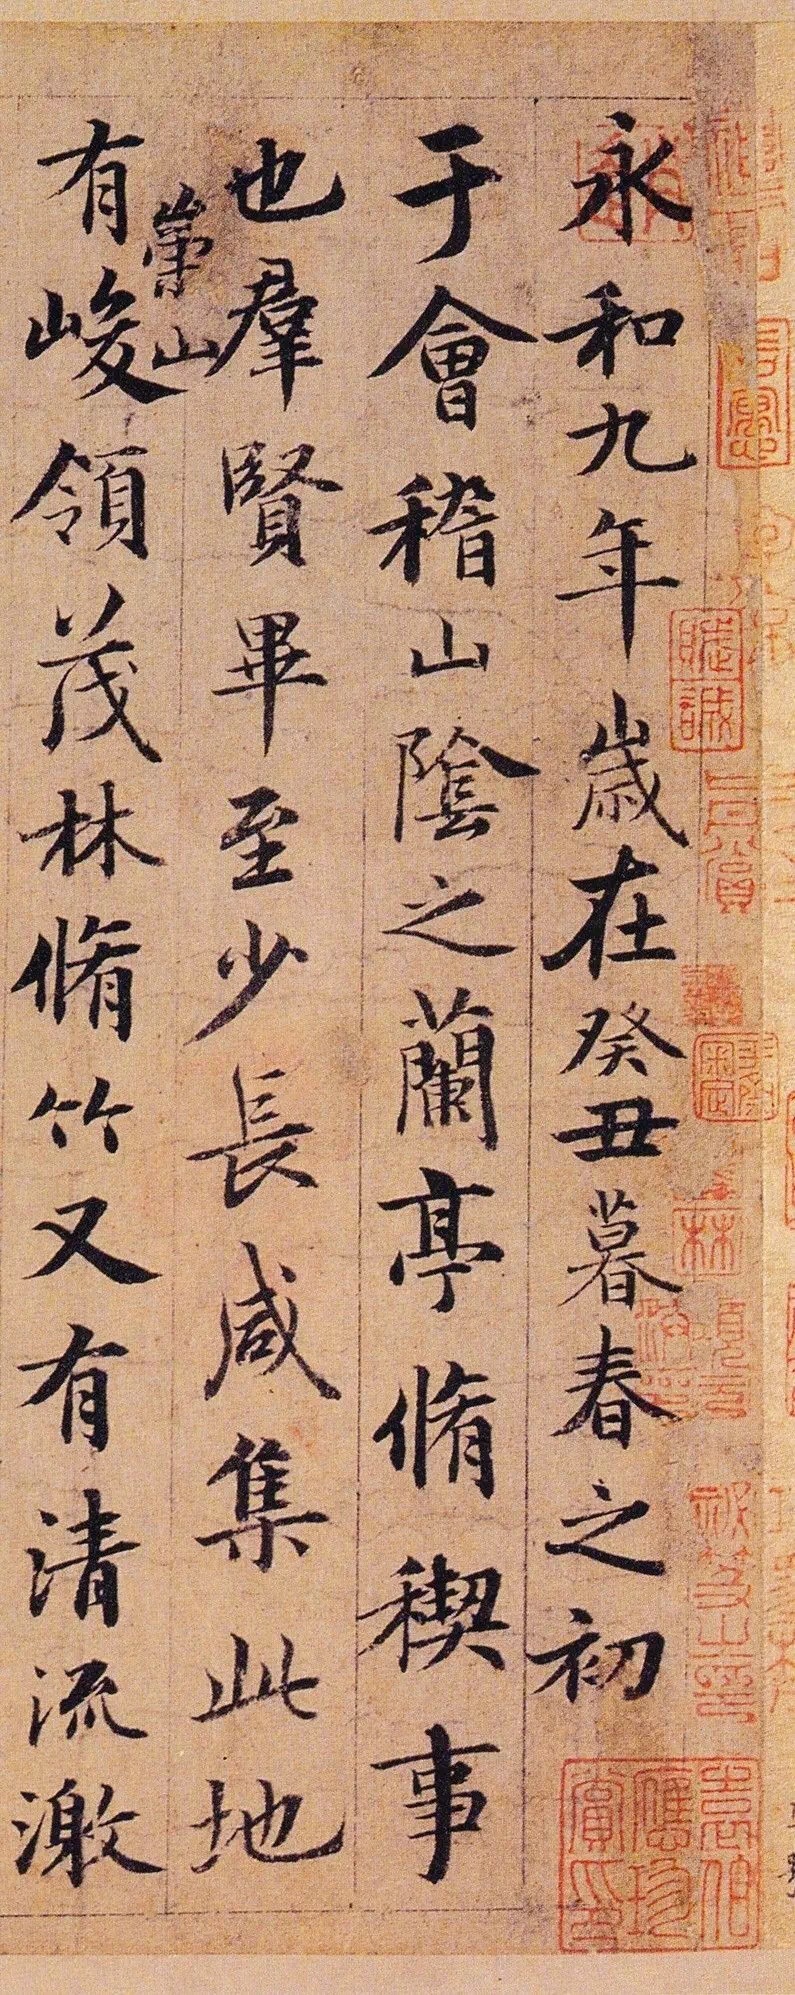 永和九年歲在癸丑暮春之初
于會稽山陰之蘭亭脩稧事
也羣賢畢至少長咸集此地
有崇山峻領茂林脩竹又有清流激